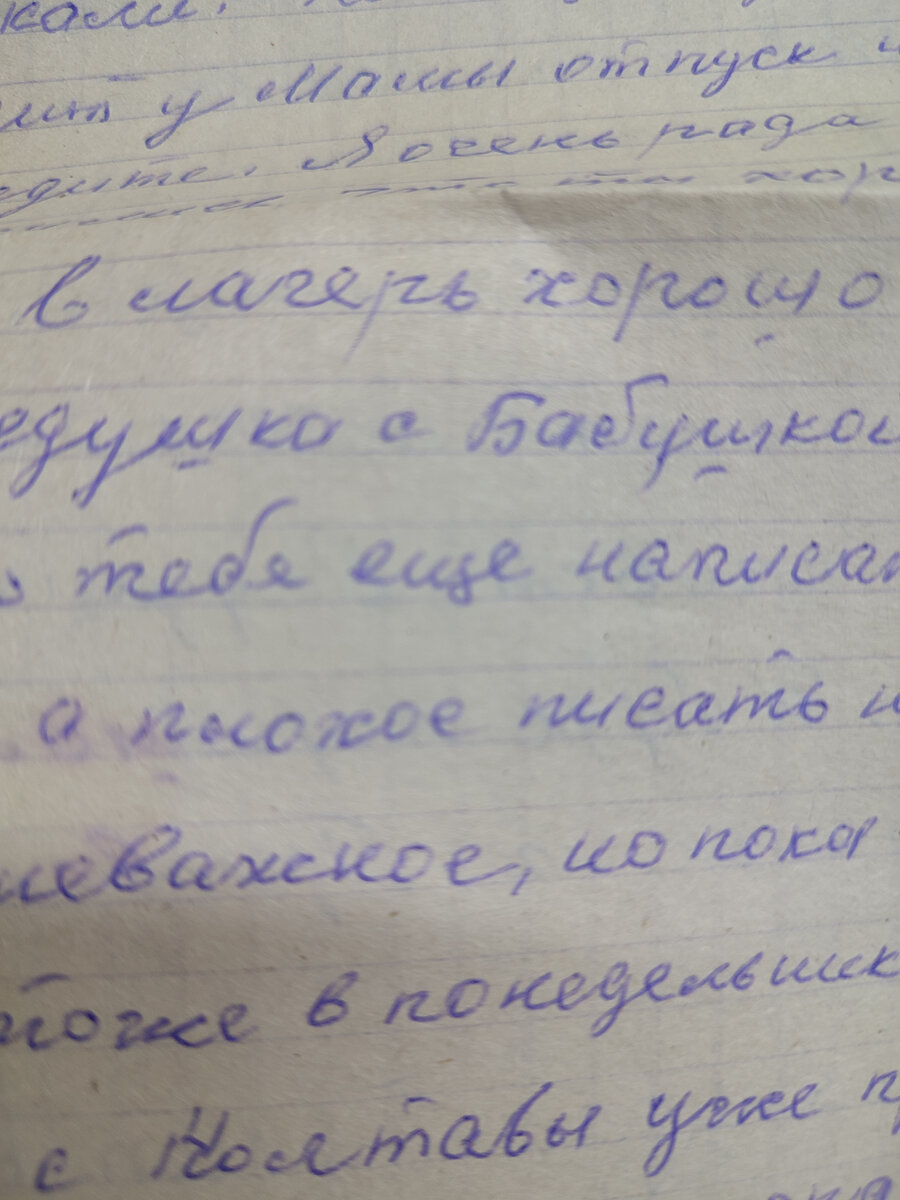 ками.
у Мамы отпуск и
едите. Я очень рада
хор
в лагерь хорошо
едушка с Бабушкой
тебя еще написат
а плохое писать н
неважное, но пока
тоже в понедельник
с Полтавы уже п